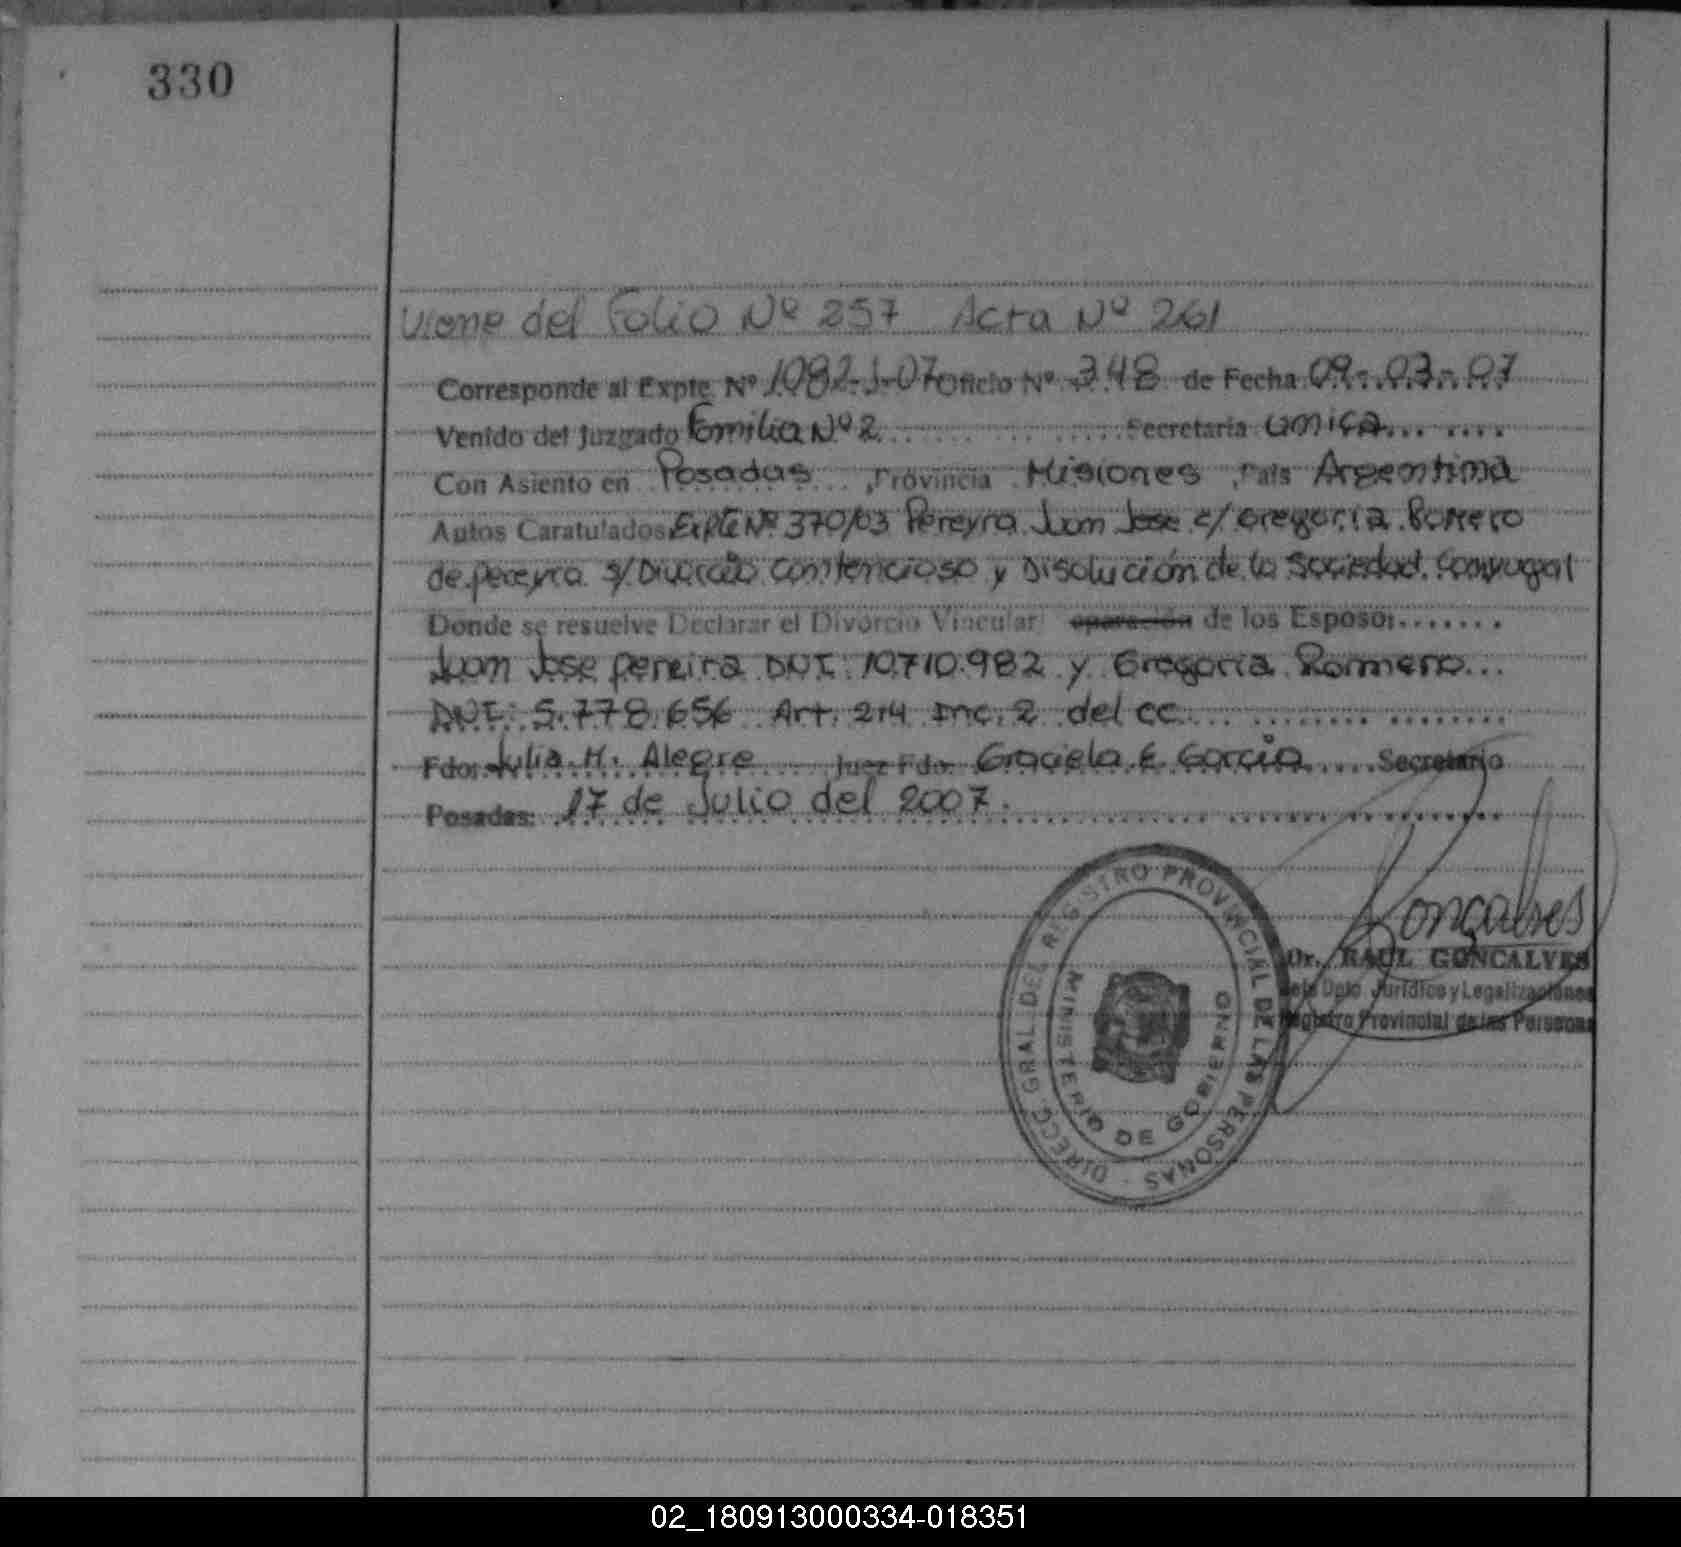 330
Viene del Folio Nº 257 Acta Nº 261
Corresponde al Expte. Nº 1982-J-07 Oficio Nº 348 de Fecha 09-03-07
Venido del Juzgado Familia Nº 2 Secretaria Unica
Con Asiento en Posadas, Provincia Misiones, País Argentina
Autos Caratulados Expte Nº 370/03 Pereyra Juan Jose c/ Gregoria Romero
de pereyra s/ Divorcio contencioso y Disolución de la Sociedad Conyugal
Donde se resuelve Declarar el Divorcio Vincular eparación de los Esposos
Juan Jose pereira DNI: 10.710.982 y Gregoria Romero
DNI: 5.778.656 Art. 214 Inc. 2 del CC.
Fdo: Julia H. Alegre Juez Fdo. Graciela E. Garcia Secretario
Posadas: 17 de Julio del 2007.
Goncalves
Dr. RAUL GONCALVES
Jefe Dpto Jurídico y Legalizaciones
Registro Provincial de las Personas
DIRECC. GRAL. DEL REGISTRO PROVINCIAL DE LAS PERSONAS -
MINISTERIO DE GOBIERNO
02_180913000334-018351